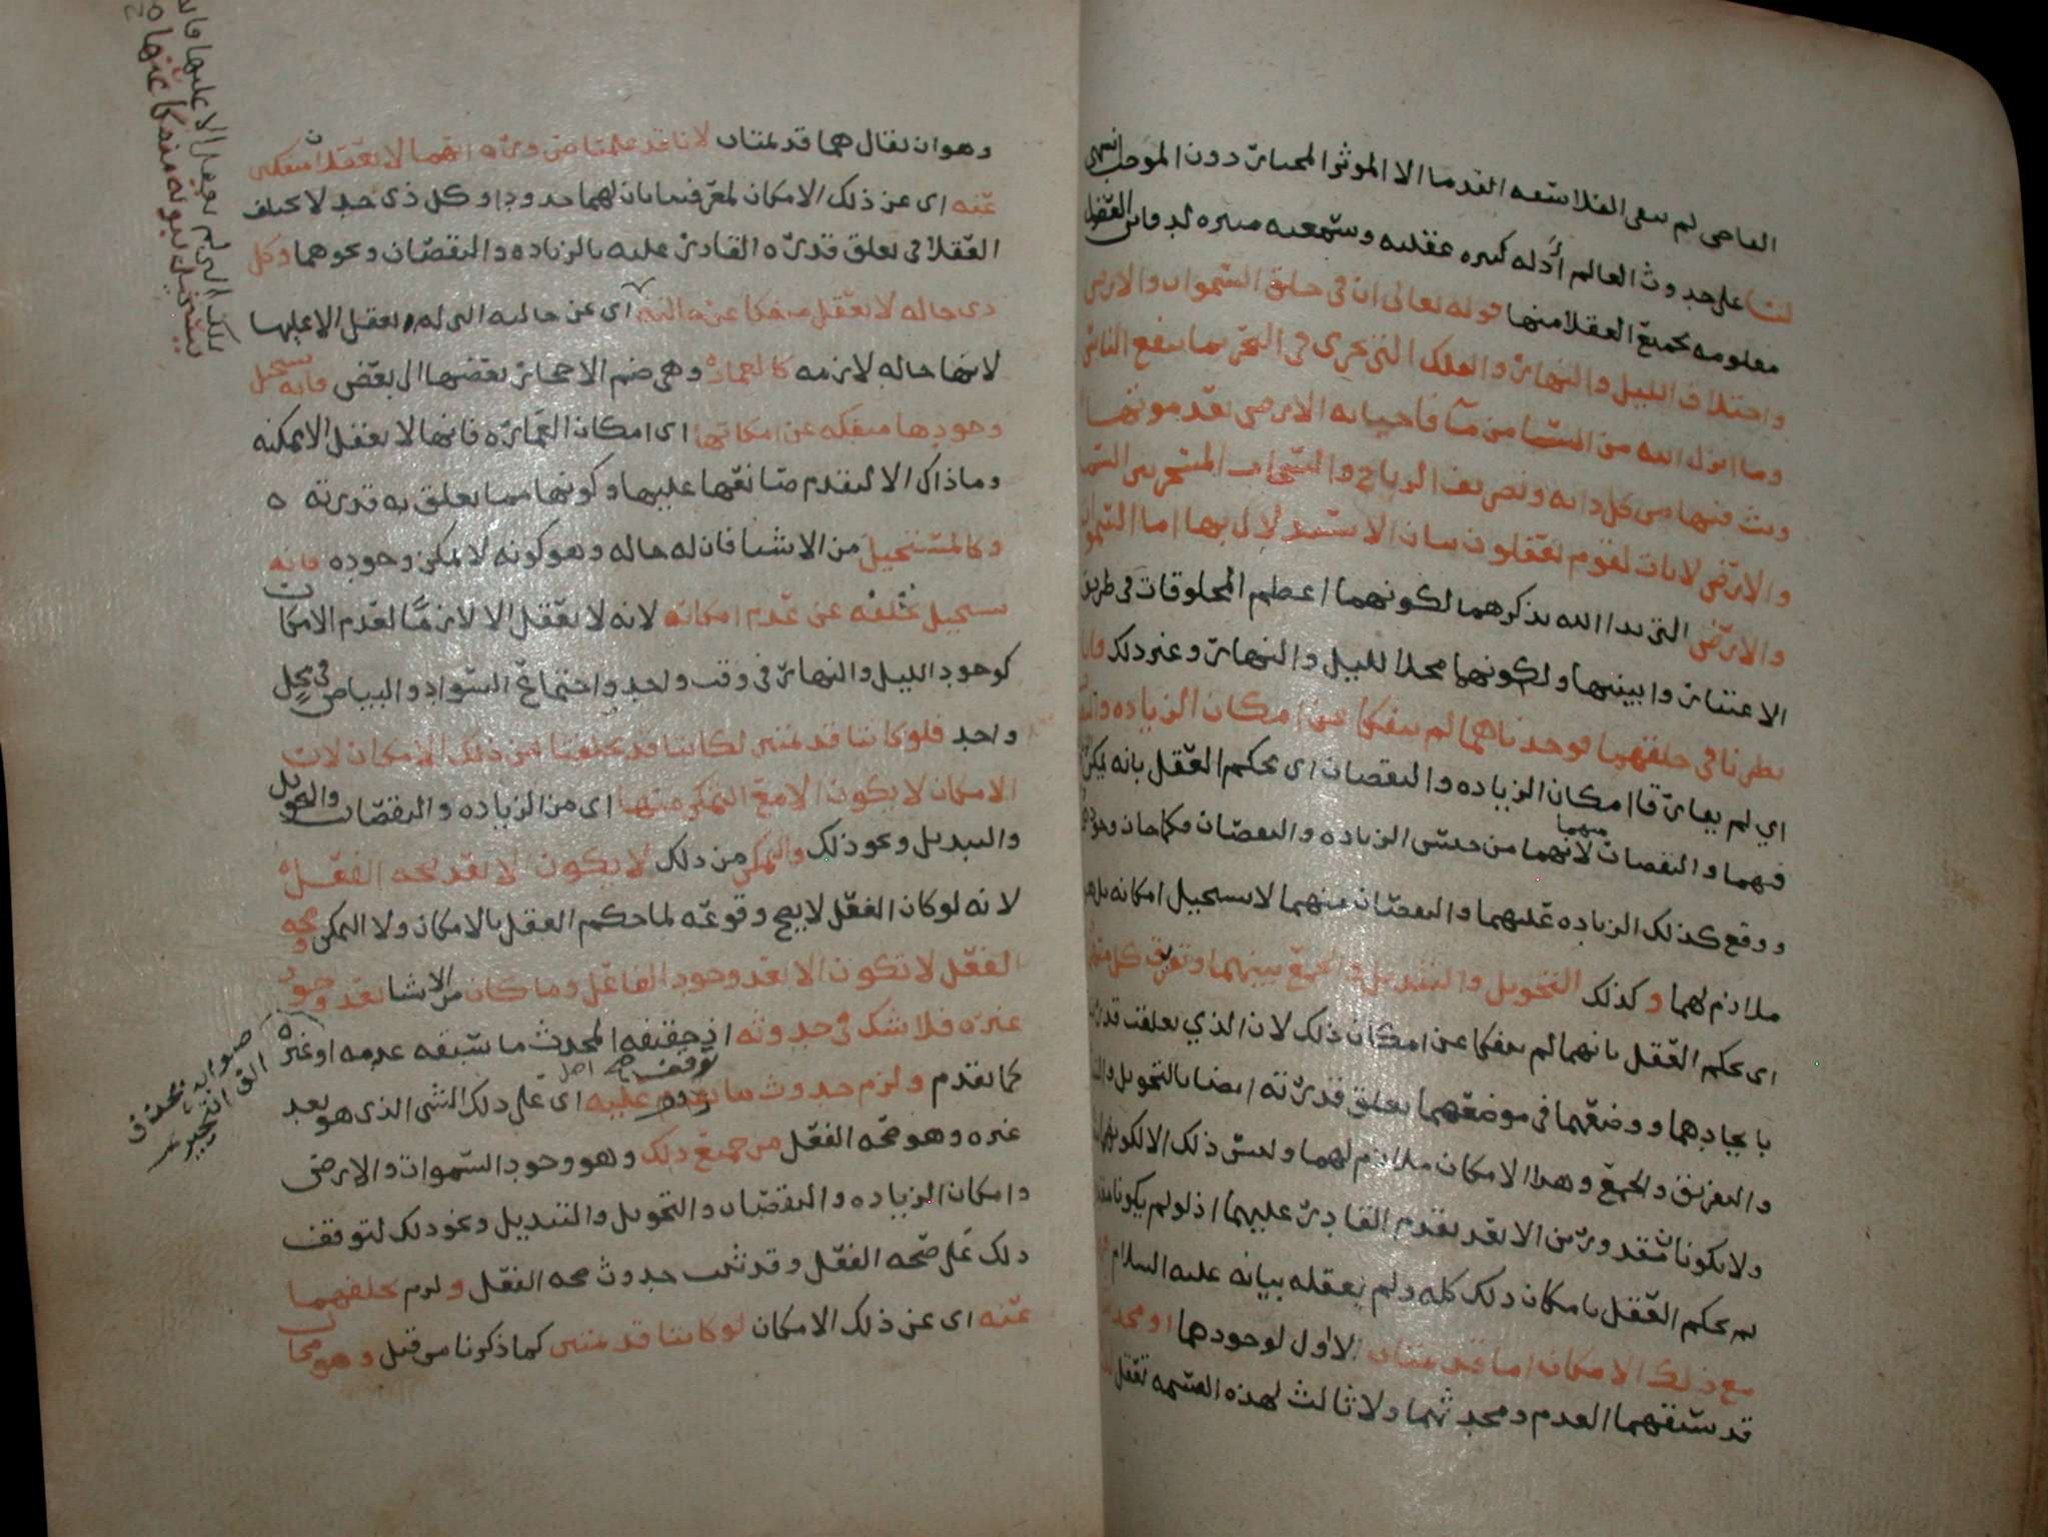 العاصى لم يبقى الفلاسفه القدما الا الموثر المختار دون الموجب انتهى
على حدوث العالم أدله كثيره عقليه وسمعيه مثيره لدفائن العقول
معلومه لجميع العقلا منها قوله تعالى ان في خلق السموات والارض
واختلاف الليل والنهار والفلك التي تجرى في البحر بما ينفع الناس
وما انزل الله من السما من مآ فاحيا به الارض بعد موتها
وبث فيها من كل دابه وتصريف الرياح والسحاب المسخر بين السما
والارض لايات لقوم يعقلون بيان الاستدلال بها اما السموات
والارض التي بدا الله بذكرهما لكونهما اعظم المخلوقات في طريق
الاعتبار وابينها ولكونهما محلا لليل والنهار وغير ذلك فانا
نظرنا في خلقهما فوجدناهما لم ينفكا عن امكان الزياده والنقصان
اي لم يفارقا امكان الزياده والنقصان اى يحكم العقل بانه يمكن
فيهما والنقصان منهما لانهما من جنس الزياده والنقصان فكما جاز وجود
ووقع كذلك الزياده عليهما والنقصان منهما لا يستحيل امكانه بل هو
ملازم لهما وكذلك التحويل والتبديل والجمع بينهما وتفريق كل منهما
اى يحكم العقل بانهما لم ينفكا عن امكان ذلك لان الذي تعلقت قدرته
بايجادهما ووضعهما في موضعهما يعلق قدرته ايضا بالتحويل والتبديل
والتفريق والجمع وهذا الامكان ملازم لهما وليس ذلك الا لكونهما
ولا يكونا مقدورين الا بعد تقدم القادر عليهما اذ لو لم يكونا
لم يحكم العقل بامكان ذلك كله ولم يعقله بيانه عليه السلام
مع ذلك الامكان اما قديمتان الاول لوجودهما او محدثتان
قد سبقهما العدم ومحدثهما ولا ثالث لهذه القسمه تعقل
وهو ان يقال هما قديمتان لانا قد علمنا ضرورة انهما لا تعقلان منفكين
عنه اى عن ذلك الامكان لمعرفتنا بان لهما حدودا وكل ذى حد لا يختلف
العقلا في تعلق قدرة القادر عليه بالزياده والنقصان ونحوهما وكل
ذى حاله لا يعقل منفكا عنها البته اى عن حالته التى لم يعقل الا عليها
لانها حاله لازمه كالعماره وهي ضم الاحجار بعضها الى بعض فانه يستحيل
وجودها منفكه عن امكانها اى امكان العماره فانها لا تعقل الا ممكنه
وما ذاك الا لتقدم صانعها عليها وكونها مما يعلق به قدرته ه
وكالمستحيل من الاشيا فان له حاله وهو كونه لا يمكن وجوده فانه
يستحيل تخلفه عن عدم امكانه لانه لا يعقل الا لازمًا لعدم الامكان
كوجود الليل والنهار في وقت واحد واجتماع السواد والبياض في محل
واحد فلو كانتا قديمتين لكانتا قد تخلفتا عن ذلك الامكان لان
الامكان لا يكون الا مع التمكن منها اى من الزياده والنقصان والتحويل
والتبديل ونحو ذلك والتمكن من ذلك لا يكون الا بعد صحه الفعل
لانه لو كان الفعل لا يصح وقوعه لما حكم العقل بالامكان ولا التمكن وصحه
الفعل لا تكون الا بعد وجود الفاعل وما كان من الاشيا بعد وجود
غيره فلا شك في حدوثه اذ حقيقه المحدث ما سبقه عدمه او غيره
كما تقدم ولزم حدوث ما توقف عليه اى على ذلك الشى الذى هو بعد
غيره وهو صحه الفعل من جميع ذلك وهو وجود السموات والارض
وامكان الزياده والنقصان والتحويل والتبديل ونحو ذلك لتوقف
ذلك على صحه الفعل وقد ثبت حدوث صحه الفعل ولزم تخلفهما
عنه اى عن ذلك الامكان لو كانتا قديمتين كما ذكرنا من قبل وهو محال
صوابه بحذف